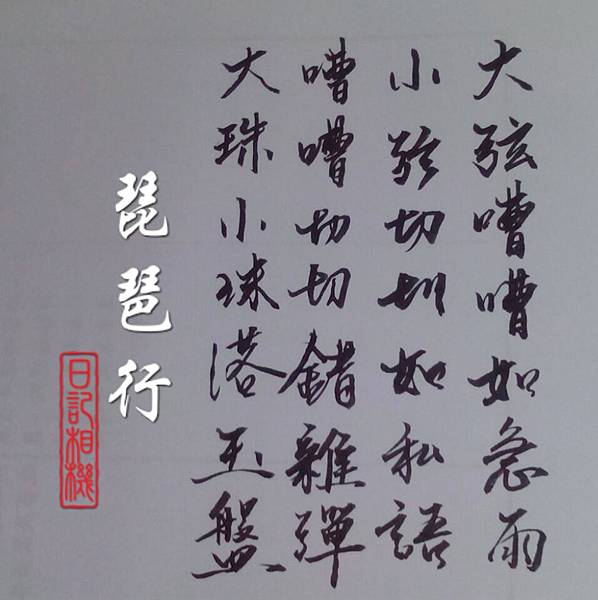 大弦嘈嘈如急雨
小弦切切如私語
嘈嘈切切錯雜彈
大珠小珠落玉盤
琵琶行
日記相機